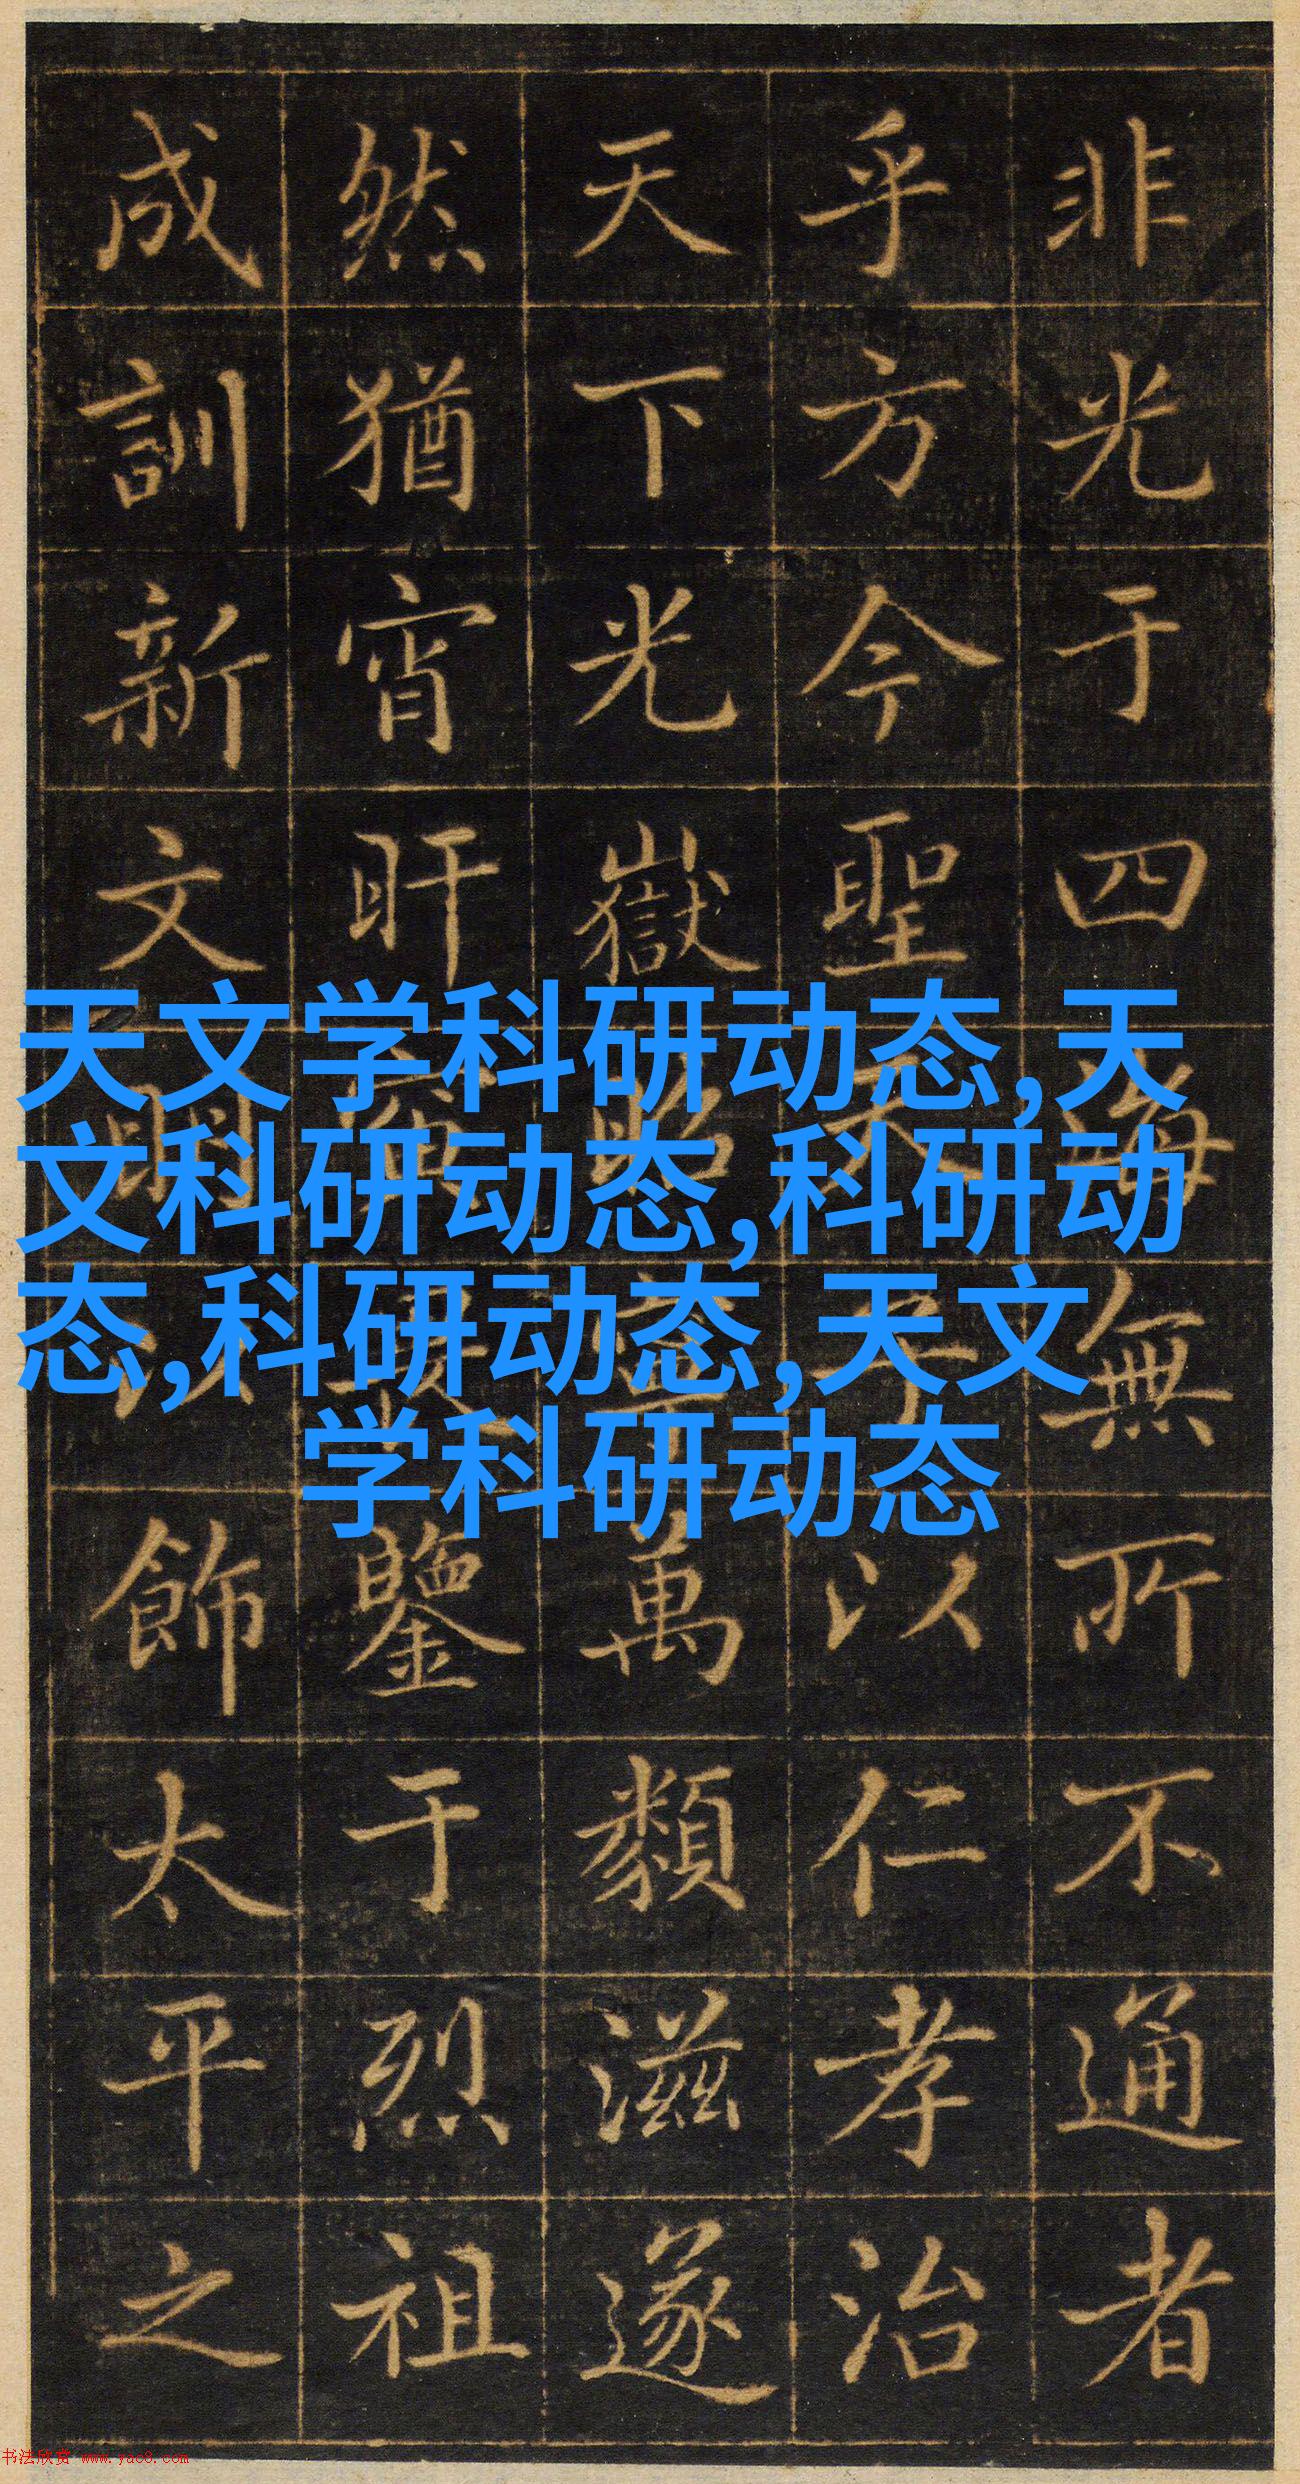 非光于四海無所不通者
乎方今聖天子以仁孝治
天下光嶽昭寧萬類滋遂
然猶宵旰寅畏鑒于烈祖
成訓新文明以飾太平之
天文学科研动态,天
文科研动态,科研动
态,科研动态,天文
学科研动态
书法欣赏 www.yac8.com